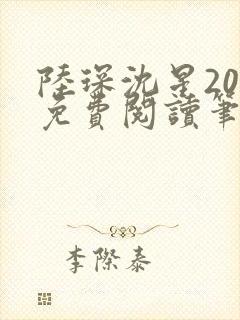 陸琛沈星20
免費閱讀筆
李際泰